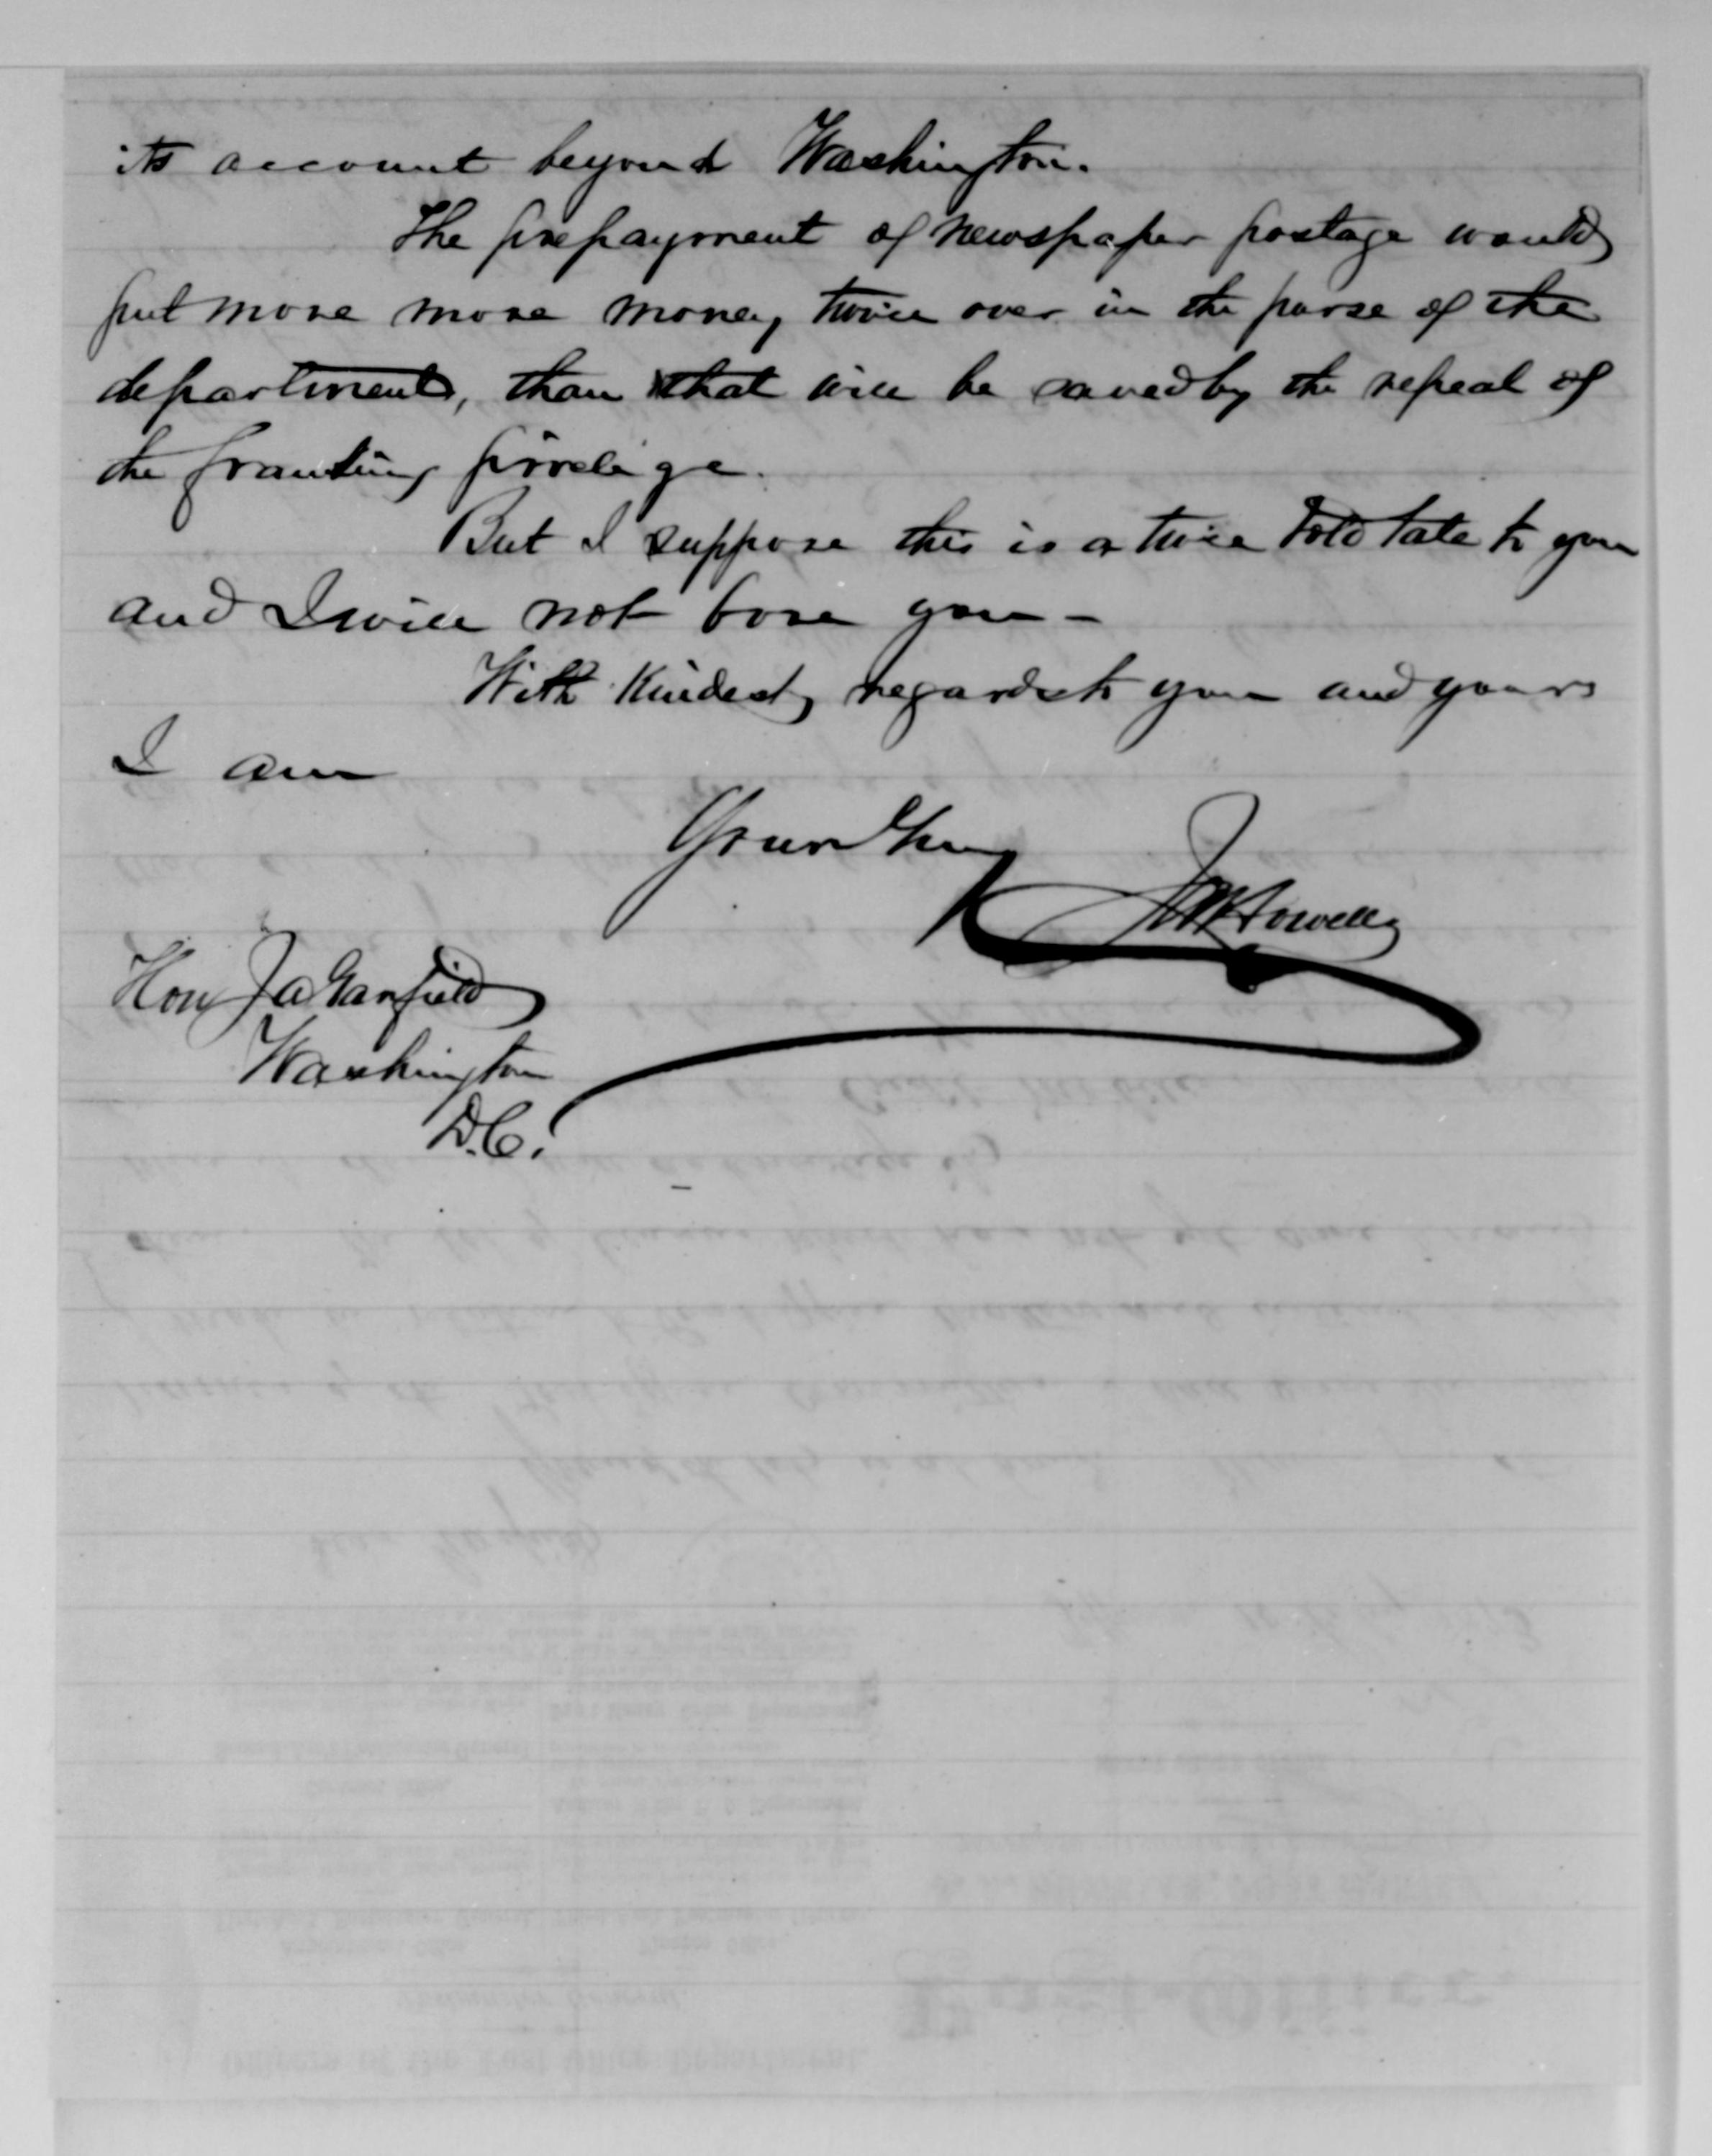 its account beyond Washington.
The prepayment of newspaper postage would
put more more money, twice over in the purse of the
department, than that will be saved by the repeal of
the franking privelige.
But I suppose this is a twice told tale to you
and I will not bore you -
With kindest regards to you and yours
I am
Yours Truly
Howells
Hon J A Garfield
Washington
D.C.